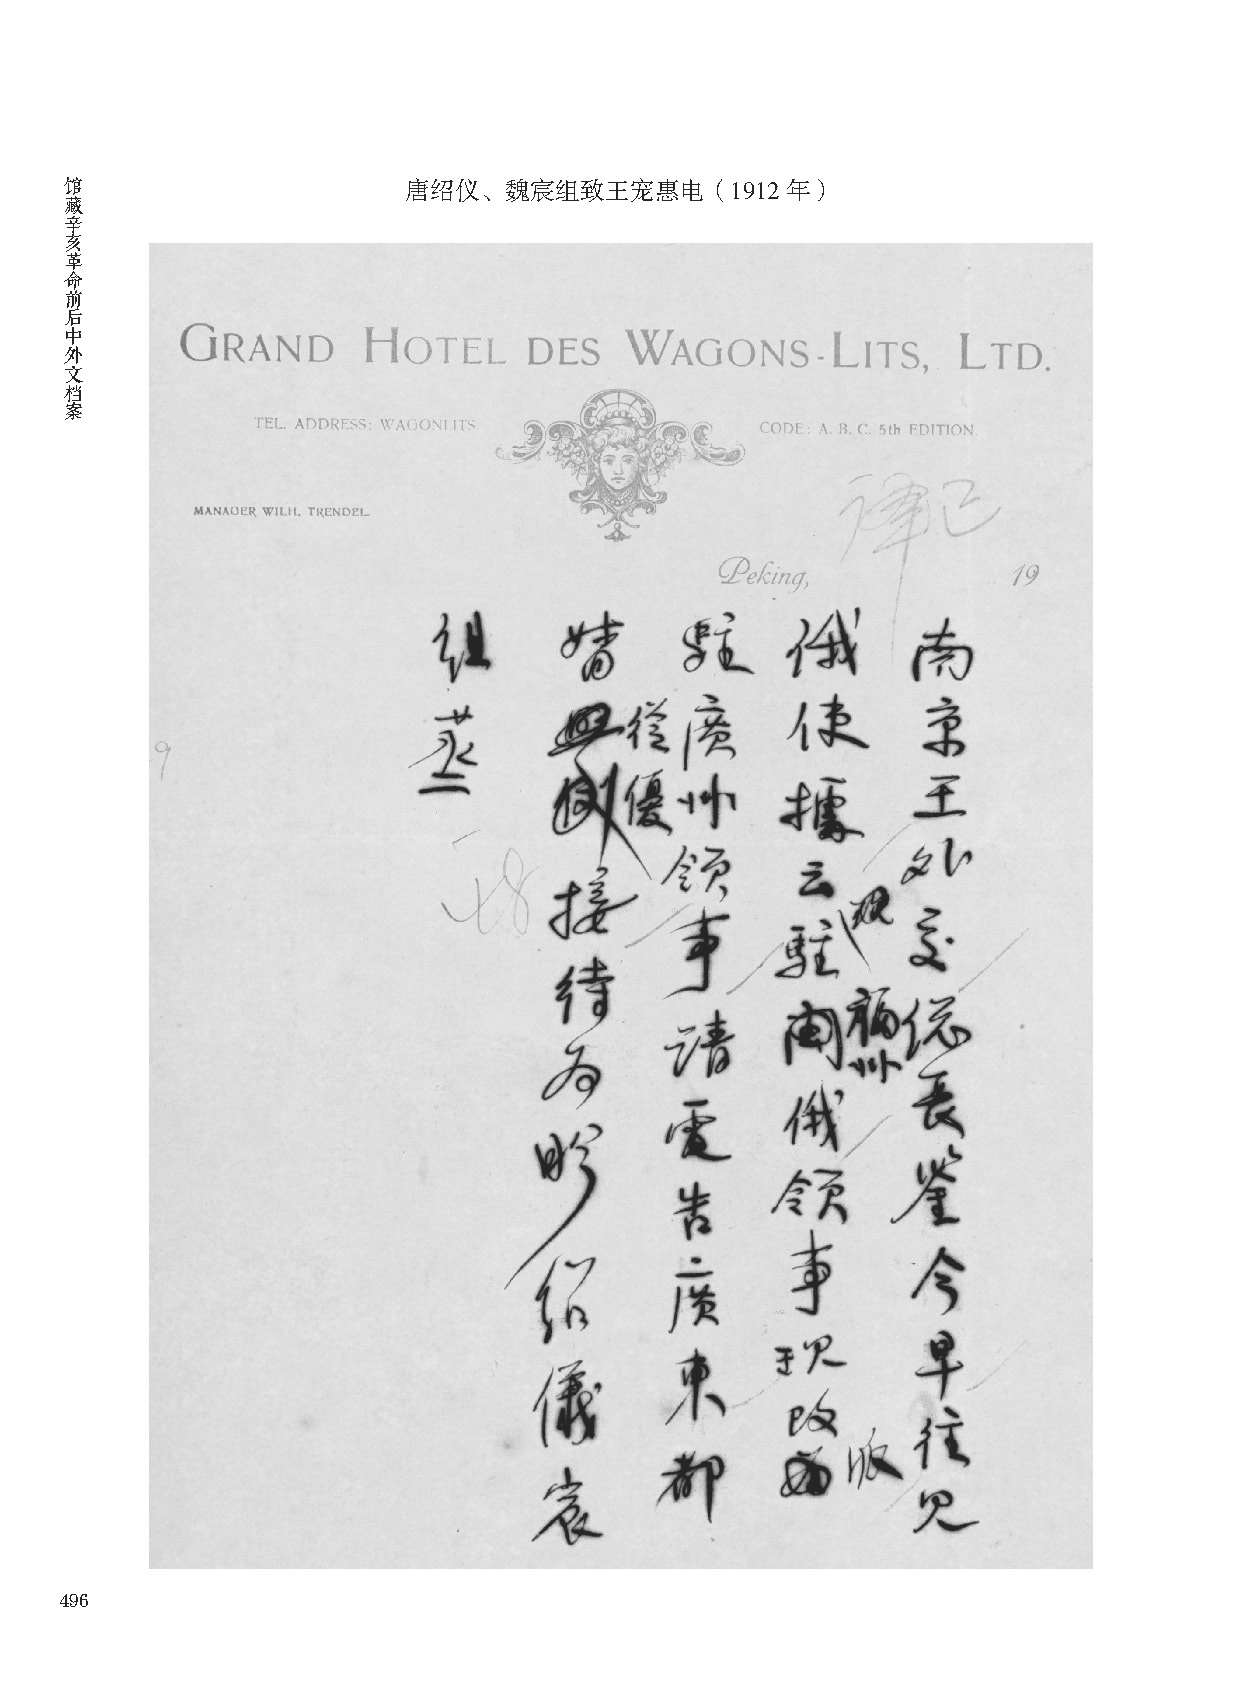 馆藏辛亥革命前后中外文档案
唐绍仪、魏宸组致王宠惠电（1912年）
GRAND HOTEL DES WAGONS-LITS, LTD.
TEL. ADDRESS: WAGONLITS
CODE: A. B. C. 5th EDITION.
MANAGER WILH. TRENDEL
譯已
Peking, 19
南京王外交總長鑒今早往見
俄使據云駐福州俄領事現改派
駐廣州領事請電告廣東都
督從優接待為盼紹儀宸
組蒸
496